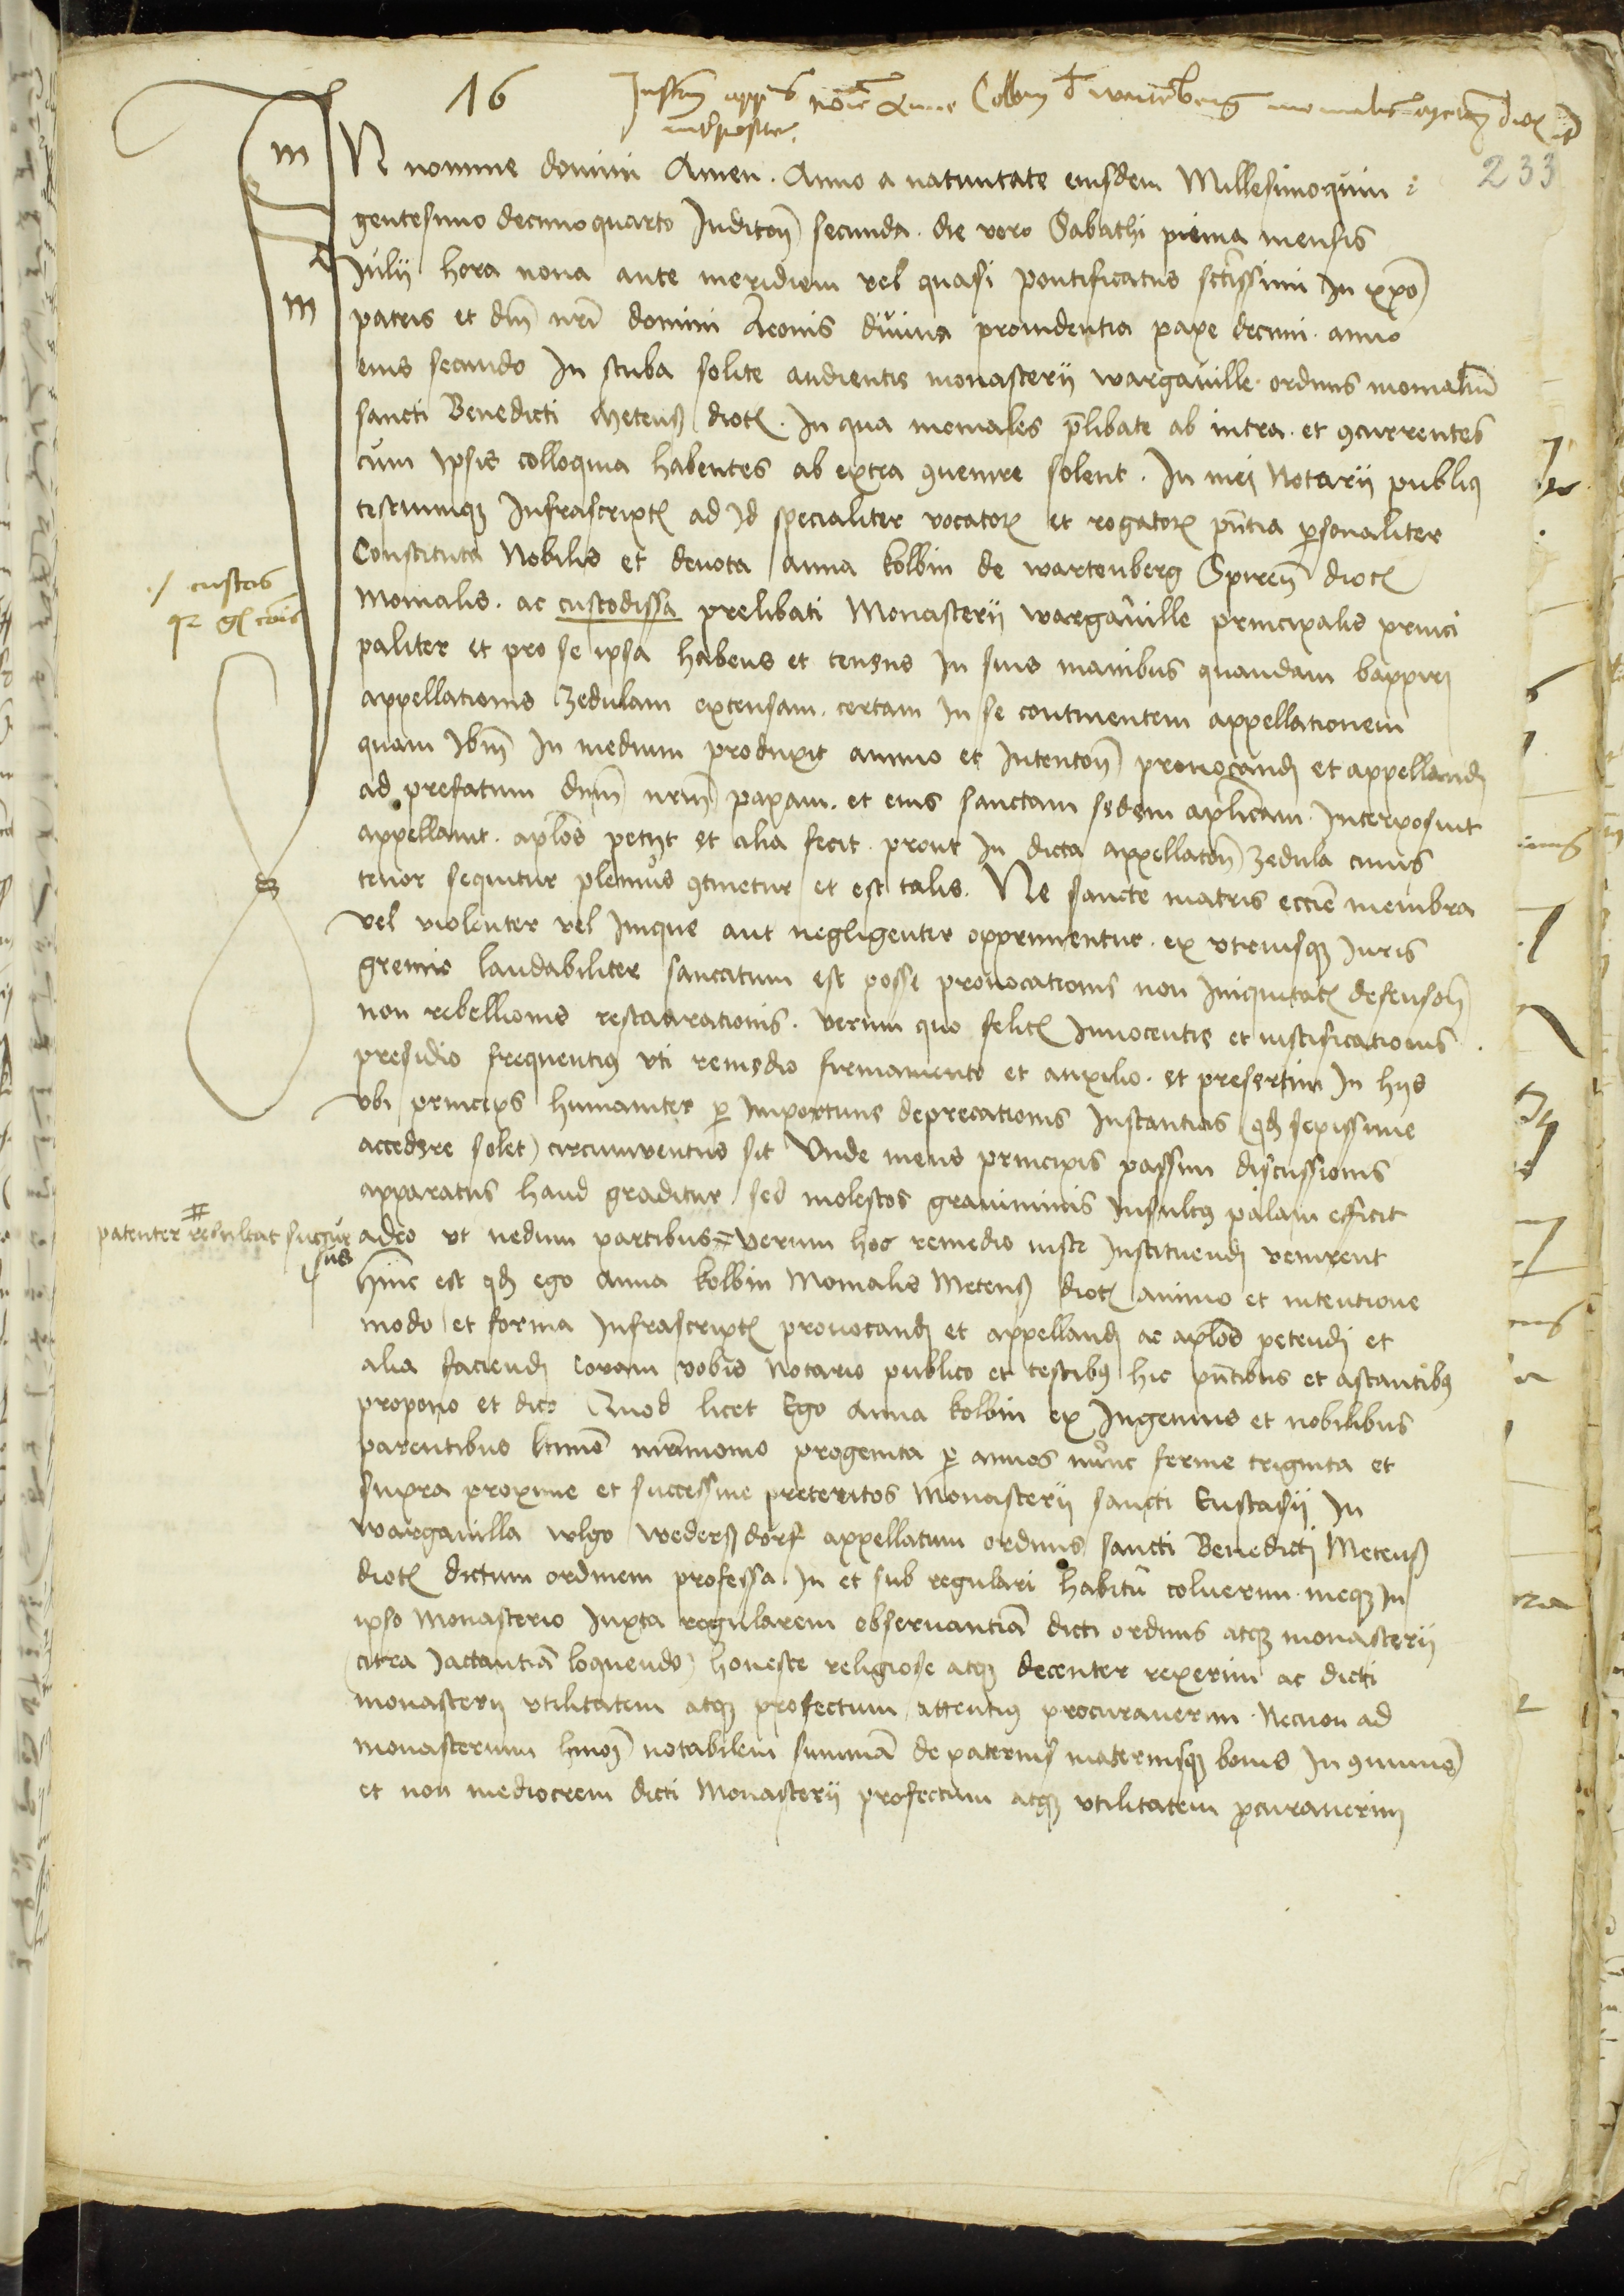 16
Instrm appnis noie Anne Colbin de wartenberg monialis Metenß dioc
interposite
233
IN nomine domini Amen . Anno a natiuitate eiusdem Millesimoquin
gentesimo decimoquarto Inditon secunda . die vero Sabathi prima mensis
Julij hora nona ante meridiem vel quasi pontificatus sctissimi In xpo
patris et dni nri domini Leonis diuina prouidentia pape decimi . anno
eius secundo In stuba solite audientie monasterij wargauille ordinis monialiu
sancti Benedicti Metenß dioc . In qua moniales plibate ab intra . et 9currentes
cum ipsis colloquia habentes ab extra 9uenire solent . In mei Notarij publici
testiumq Infrascript ad Id specialiter vocator et rogator pntia psonaliter
Constituta Nobilis et deuota Anna kolbin de wartenberg Spiren dioc
Monialis . ac custodissa prelibati Monasterij wargauille principalis princi
paliter et pro se ipsa habens et tenens In suis manibus quandam bappiri
appellationis zedulam extensam . certam In se continentem appellationem
quam Ibm In medium produxit animo et Intenton prouocandi et appellandi
ad prefatum dnm nrm papam . et eius sanctam sedem aplicam . Interposuit
appellauit . aplos petijt et alia fecit . prout In dicta appellaton zedula cuius
tenor sequitur plenius 9tinetur et est talis . Ne sancte matris eccie membra
vel violenter vel Inique aut negligenter opprimentur . ex vtriusq Iuris
gremio laudabiliter sanccitum est posse prouocationis non Iniquitat defension
non rebellionis restaurationis . verum quo felic Innocentie et iustificationis
presidio frequentius vti remedio firmamento et auxilio . et presertim In hijs
vbi princeps humaniter p Importune deprecationis Instantias (qd sepissime
accedere solet) circumventus sit Vnde mens principis passim discussionis
apparatus haud graditur . sed molestos Insultus palam efficit
adeo vt nedum partibus verum hoc remedio iuste Instituendi venirent
hinc est qd ego Anna kolbin Monialis Metenß dioc animo et intentione
modo et forma Infrascript prouocandi et appellandi ac aplos petendi et
alia faciendi coram vobis Notario publico et testibus hic pntibus et astantibus
propono et dico Quod licet Ego Anna kolbin ex Ingenuis et nobilibus
parentibus ltimo mrimonio progenita p annos nunc ferme triginta et
supra proxime et successiue preteritos Monasterij sancti Eustasij In
wargauilla wlgo wederßdorf appellatum ordinis sancti Benedicti Metenß
dioc dictum ordinem professa . In et sub regulari habitu coluerim . meq In
ipso Monasterio Iuxta regularem obseruantia dicti ordinis atq monasterij
(citra Iactantia loquendo) honeste religiose atq decenter rexerim ac dicti
monasterij vtilitatem atq profectum attentius procurauerim . Necnon ad
monasterium hmoi notabilem summa de paternis maternisq bonis In 9mune
et non mediocrem dicti Monasterij profectum atq vtilitatem pcurauerim
custos
patenter resultat